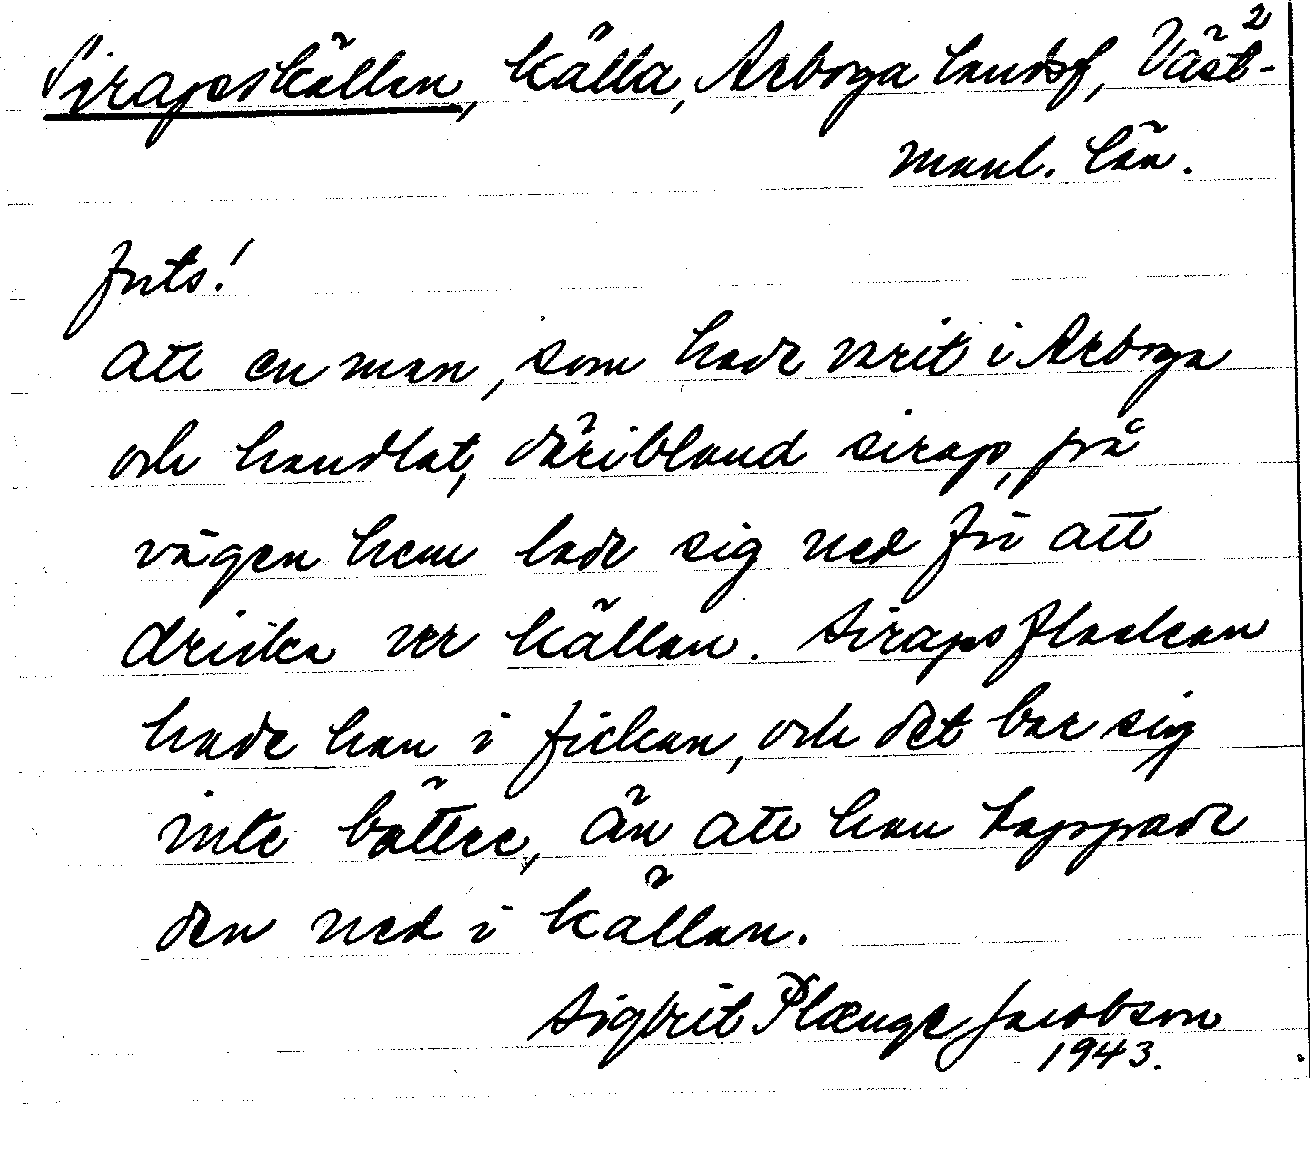 2
Sirapskällan, källa, Arboga landsf, Väst-
manl. län.
Forts!
att en man, som hade varit i Arboga
och handlat, däribland sirap, på
vägen hem lade sig ned för att
dricka ur källan. Sirapsflaskan
hade han i fickan, och det bar sig
inte bättre, än att han tappade
den ned i källan.
Sigbrit Plænge Jacobson
1943.